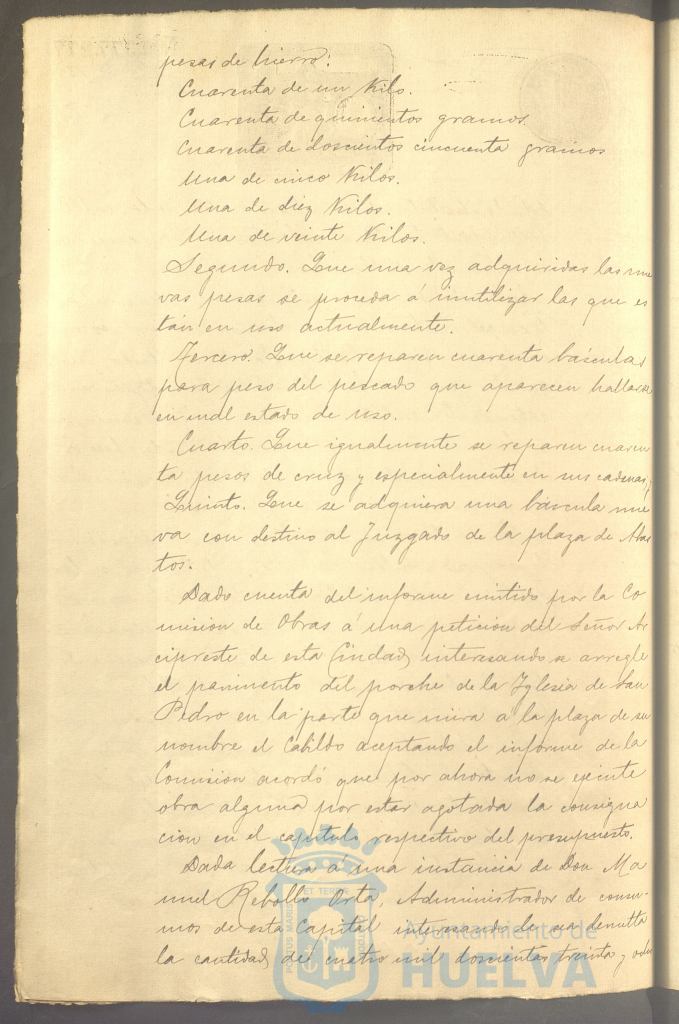 pesas de hierro:
Cuarenta de un Kilo.
Cuarenta de quinientos gramos.
Cuarenta de doscientos cincuenta gramos
Una de cinco Kilos.
Una de diez Kilos.
Una de veinte Kilos.
Segundo. Que una vez adquiridas las nue
vas pesas se proceda á inutilizar las que es
tán en uso actualmente.
Tercero. Que se reparen cuarenta básculas
para peso del pescado que aparecen hallarse
en mal estado de uso.
Cuarto. Que igualmente se reparen cuaren
ta pesos de cruz y especialmente en sus cadenas,
Quinto. Que se adquiera una báscula nue
va con destino al Juzgado de la plaza de Abas
tos.
Dado cuenta del informe emitido por la Co
misión de Obras á una petición del Señor Ar
cipreste de esta Ciudad, interesando se arregle
el pavimento del porche de la Iglesia de San
Pedro en la parte que mira a la plaza de su
nombre el Cabildo aceptando el informe de la
Comisión acordó que por ahora no se ejecute
obra alguna por estar agotada la consigna
ción en el capítulo respectivo del presupuesto.
Dada lectura á una instancia de Don Ma
nuel Rebollo Orta, Administrador de consu-
mos de esta Capital interesando le sea devuelta
la cantidad de cuatro mil doscientas treinta y ocho
PORTUS MARIS ET TERRAE CUSTODIA
Ayuntamiento de
HUELVA